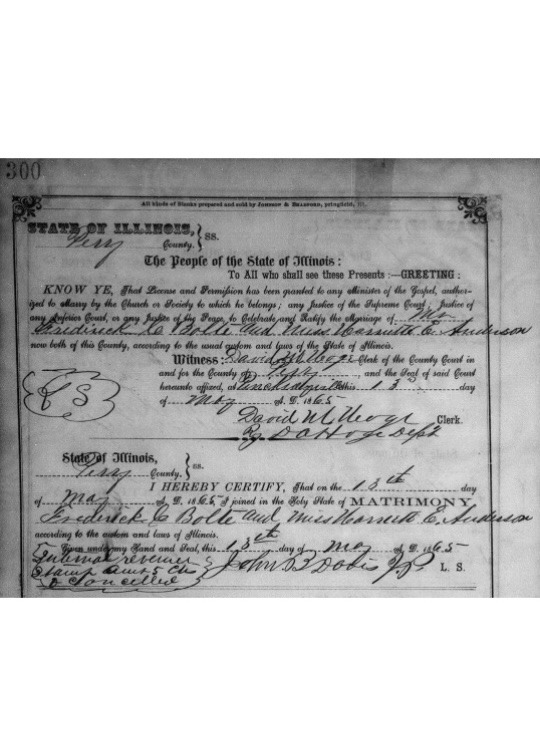 300
All kinds of Blanks prepared and sold by Johnson & Bradford, pringfield, Ill.
STATE OF ILLINOIS, } ss.
Perry County.
The People of the State of Illinois:
To All who shall see these Presents:—GREETING:
KNOW YE, That License and Permission has been granted to any Minister of the Gospel, author-
ized to Marry by the Church or Society to which he belongs; any Justice of the Supreme Court; Justice of
any Inferior Court, or any Justice of the Peace, to Celebrate and Ratify the Marriage of Mr
Fredirick C Bolte and Miss Harriett E. Anderson
now both of this County, according to the usual custom and laws of the State of Illinois.
Witness: David Clerk of the County Court in
and for the County of Perry and the Seal of said Court
hereunto affixed, at Pinckneyville this 13th day
of May A. D. 1865
L S
David Clerk.
By Dept
State of Illinois, } ss.
Perry County.
I HEREBY CERTIFY, That on the 13th day
of May A. D. 1865, I joined in the Holy State of MATRIMONY,
Frederick C Bolte and Miss Harriett E. Anderson
according to the custom and laws of Illinois.
Given under my Hand and Seal, this 13th day of May A. D. 1865
Internal revenue
Stamp Amt 5 Cts
Cancelled
John J.P. L. S.